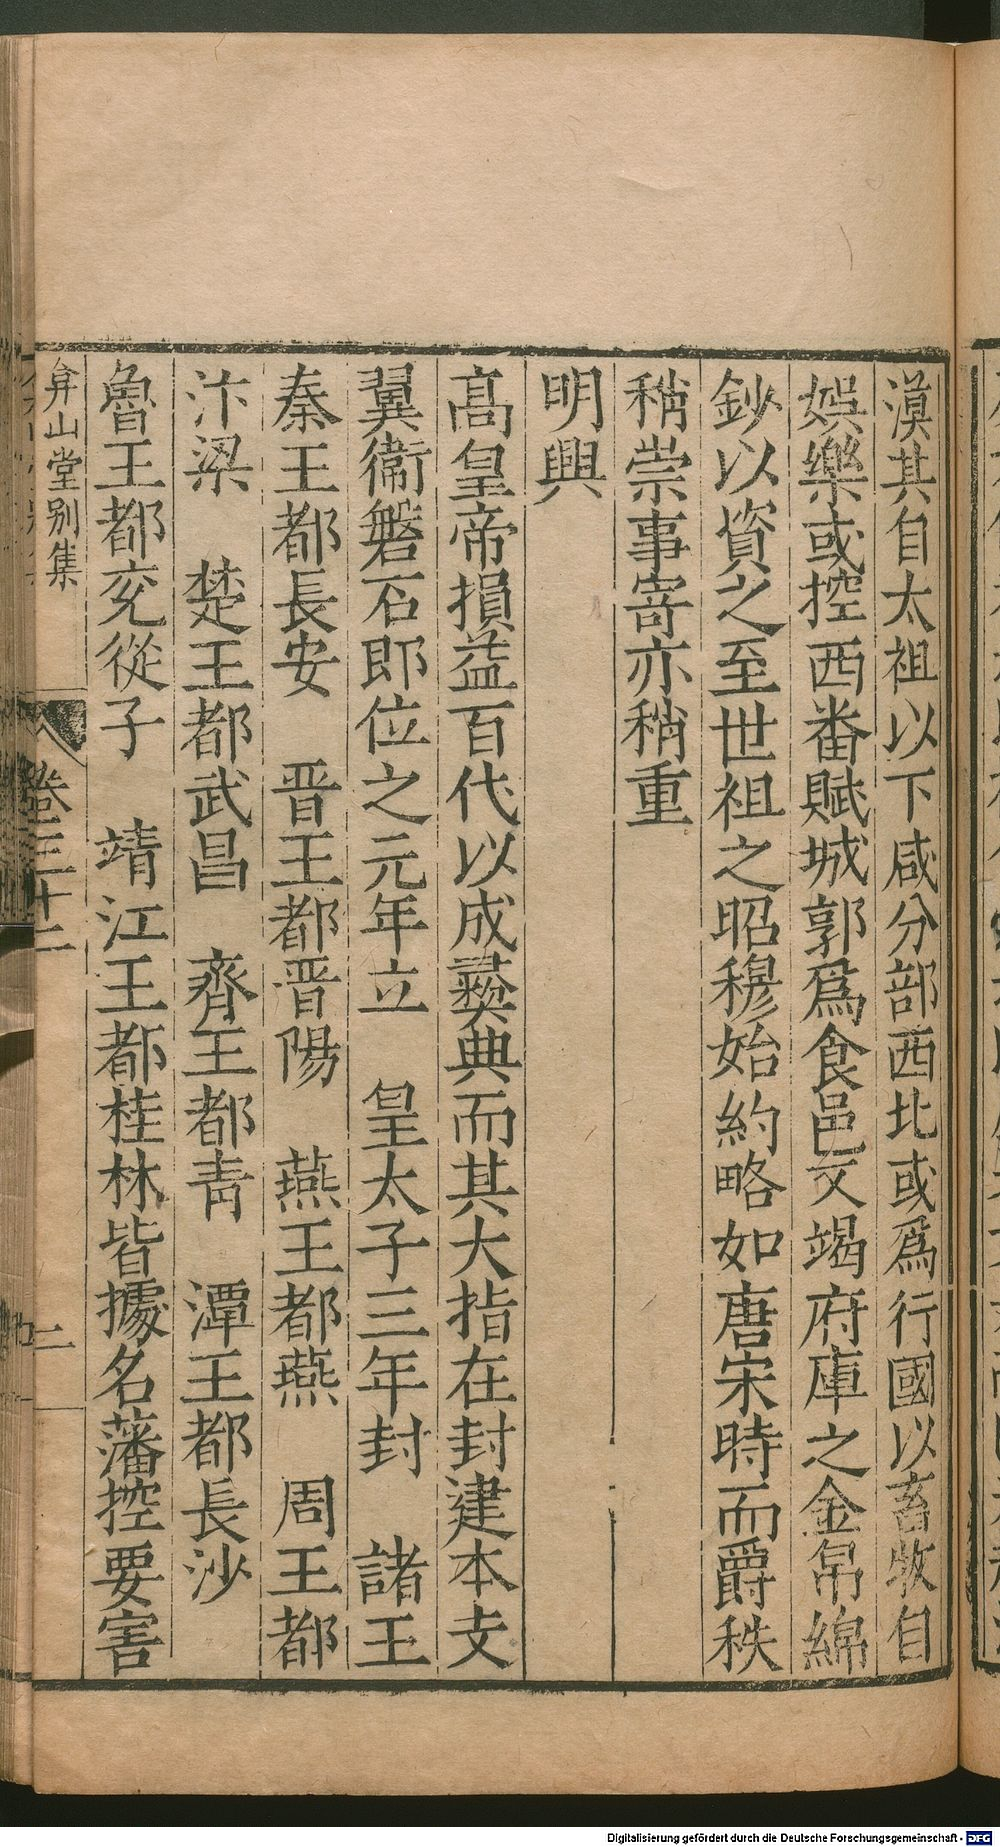 漠其自太祖以下咸分部西北或爲行國以畜牧自
娯樂或控西番賦城郭爲食邑又竭府庫之金帛綿
鈔以資之至世祖之昭穆始約略如唐宋時而爵秩
稍崇事寄亦稍重
明興
高皇帝損益百代以成彛典而其大指在封建本支
翼衞磐石即位之元年立　皇太子三年封　諸王
秦王都長安　晋王都晋陽　燕王都燕　周王都
汴梁　楚王都武昌　齊王都青　潭王都長沙
魯王都兖從子　靖江王都桂林皆據名藩控要害
弇山堂别集
卷三十二
二
Digitalisierung gefördert durch die Deutsche Forschungsgemeinschaft - DFG